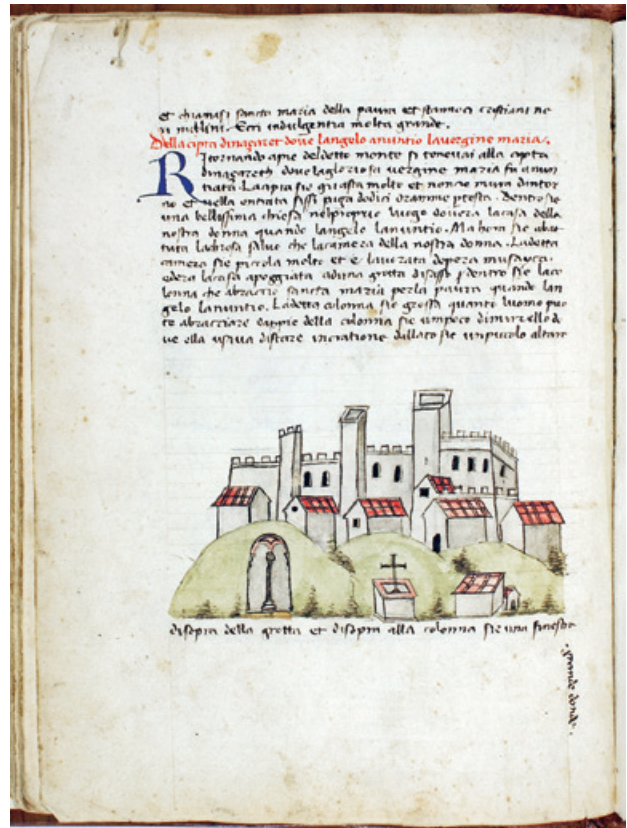 et chiamasi sancta maria della paura et stannoci cristiani ne
ri nubieni. Ecci indulgentia molta grande.
Della cipta dinazaret dove langelo anuntio lavergine maria.
Ritornando apie deldetto monte si tenevai alla cipta
dinazareth dove lagloriosa vergine maria fu anun
tiata. Lacipta sie guasta molto et nonce mura dintor
no et nella entrata sissi paga dodici dramme presta. Dentro sie
una bellissima chiesa nelproprio luogo dovera lacasa della
nostra donna quando langelo lanuntio. Ma hora sie abat
tuta lachiesa salvo che lacamera della nostra donna. Ladetta
camera sie piccola molto et e lavorata dopera musayca.
edera lacasa apoggiata aduna grotta disasso et dentro sie laco
lonna che abraccio sancta maria perla paura quando lan
gelo lanuntio. Ladetta colonna sie grossa quanto luomo puo
te abracciare eappie della colonna sie unpoco dimurello do
ve ella usava distare inoratione dallato sie unpiccolo altare
disopra della grotta et disopra alla colonna sie una finestra
grande donde